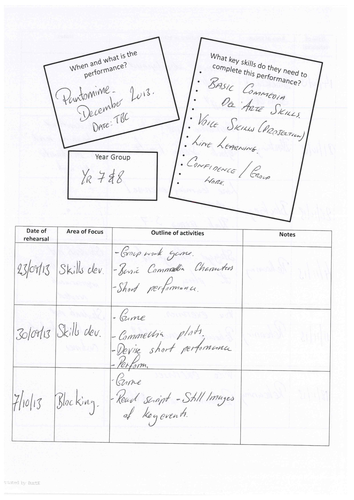 When and what is the
performance?
Pantomime.
December 2013.
Date: TBC
What key skills do they need to
complete this performance?
• Basic Commedia
Del'Arte Skills.
• Voice Skills (Projection)
• Line Learning.
• Confidence / Group
work.
Year Group
Yr 7 & 8
Date of
rehearsal
Area of Focus
Outline of activities
Notes
23/09/13
Skills dev
- Group work game.
- Basic Commedia Characters
- Short performance.
30/09/13
Skills dev.
- Game
- Commedia plots,
- Devise short performance
- Perform
7/10/13
Blocking.
- Game
- Read script - Still Images
of key events.